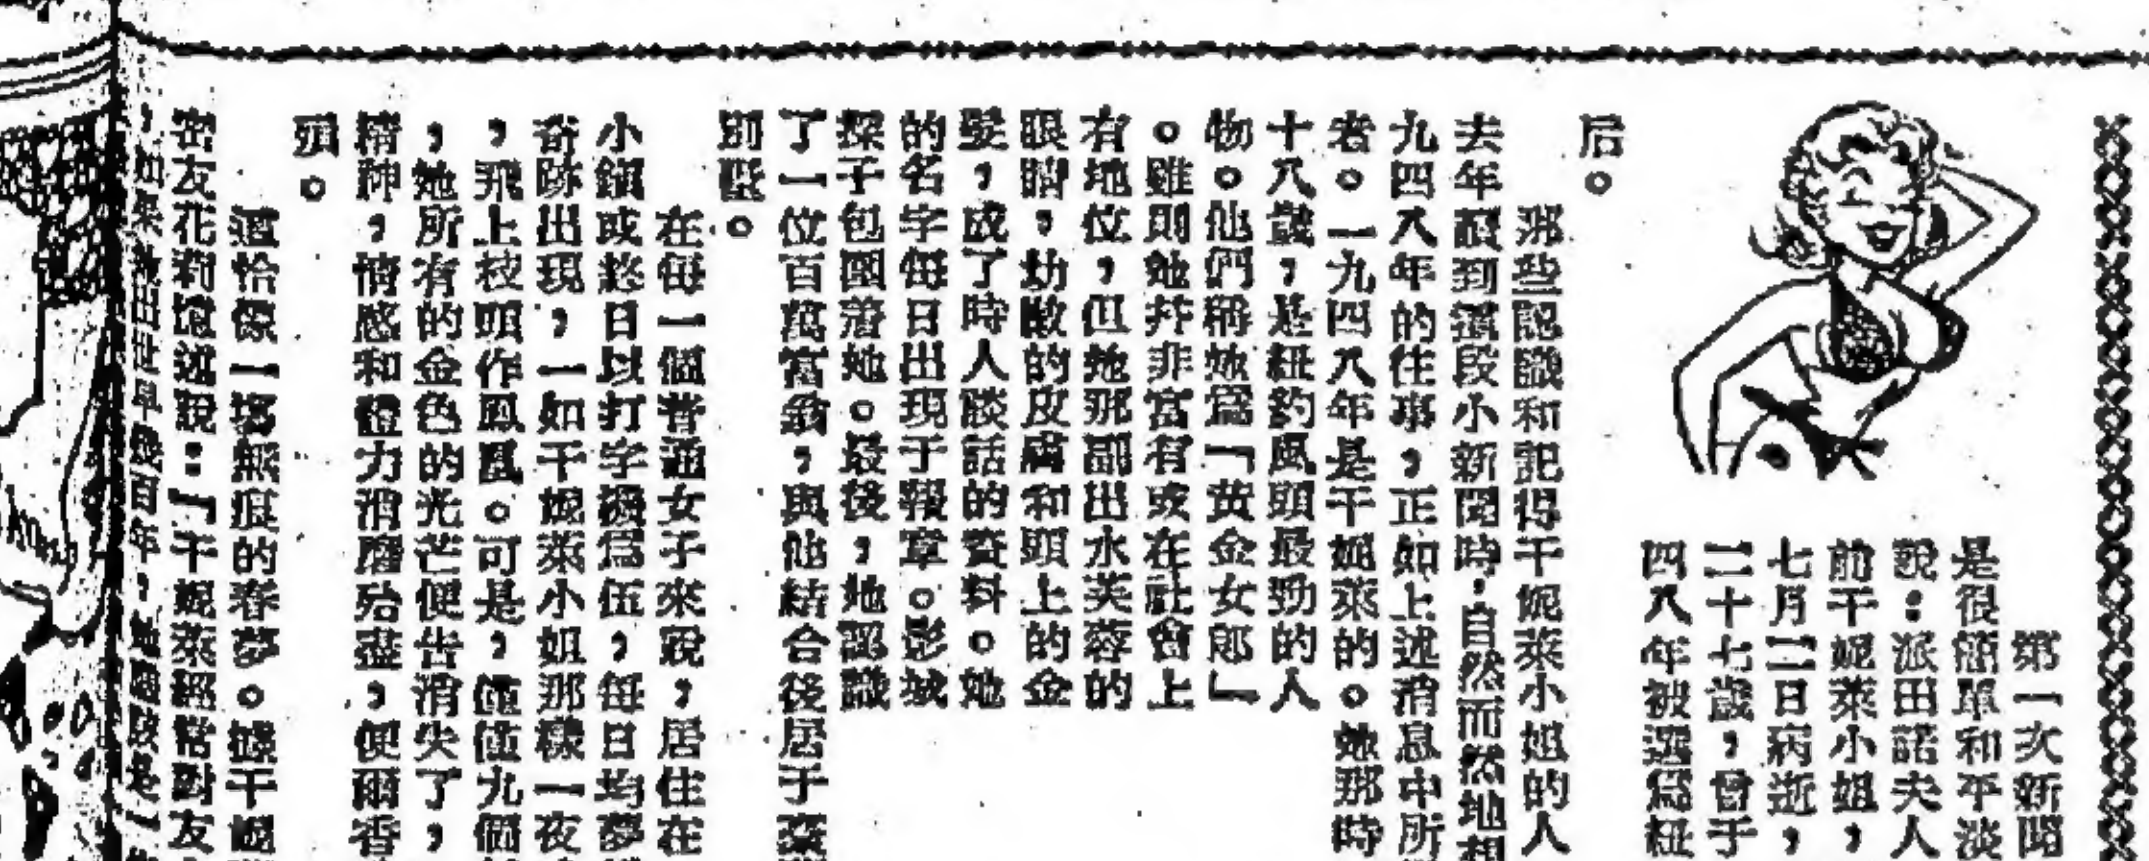 第一次新聞
是很簡單和平淡
說：派田諾夫人
前干妮萊小姐，
七月二日病逝，
二十七歲，曾于
四八年被選爲紐
后。
那些認識和記得干妮萊小姐的人
去年讀到這段小新聞時，自然而然地想
九四八年的往事，正如上述消息中所
者。一九四八年是干妮萊的。她那時
十八歲，是紐約風頭最勁的人
物。他們稱她爲「黃金女郎」
。雖則她并非富有或在社會上
有地位，但她那副出水芙蓉的
眼睛，幼嫩的皮膚和頭上的金
髮，成了時人談話的資料。她
的名字每日出現于報章。影城
探子包圍着她。最後，她認識
了一位百萬富翁，與他結合後居于
別墅。
在每一個普通女子來說，居住在
小鎭或終日以打字機爲伍，每日均夢
奇跡出現，一如干妮萊小姐那樣一夜
，飛上枝頭作鳳凰。可是，僅僅九個
，她所有的金色的光芒便告消失了，
精神，情感和體力消磨殆盡，便爾香
殞。
這恰像一塲無痕的春夢。據干妮
密友花莉憶述說：「干妮萊經常對友
，如果她出世早幾百年，她應該是一